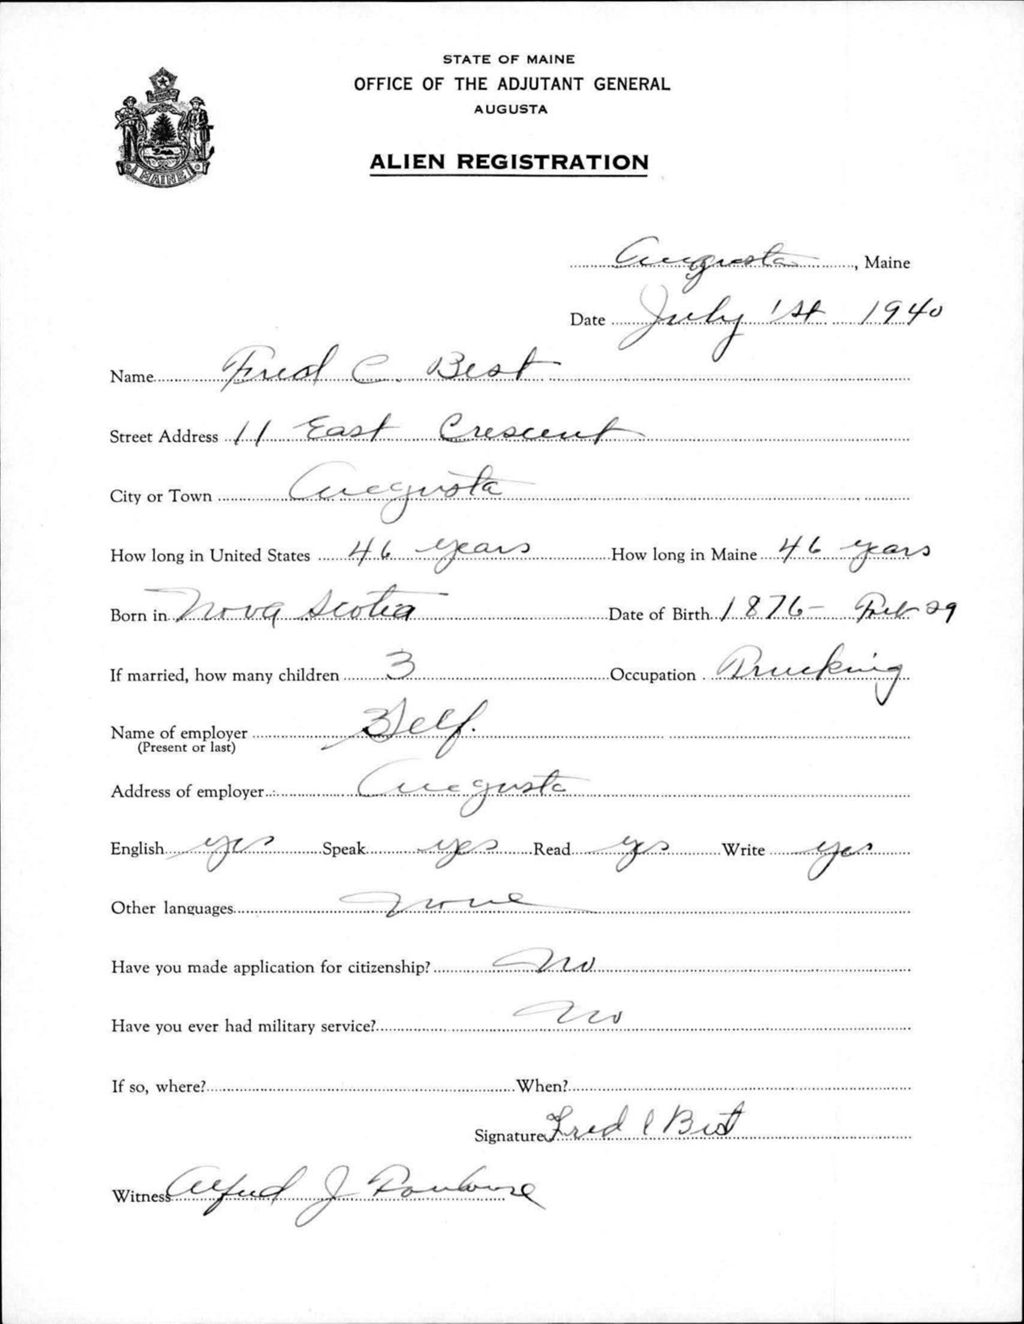 STATE OF MAINE
OFFICE OF THE ADJUTANT GENERAL
AUGUSTA
ALIEN REGISTRATION
MAINE
Augusta, Maine
Date July 1st 1940
Name Fred C. Best
Street Address 11 East Crescent
City or Town Augusta
How long in United States 46 years How long in Maine 46 years
Born in Nova Scotia Date of Birth 1876- Feb 29
If married, how many children 3 Occupation Trucking
Name of employer Self.
(Present or last)
Address of employer Augusta
English yes Speak yes Read yes Write yes
Other languages None
Have you made application for citizenship? No
Have you ever had military service? No
If so, where? When?
Signature Fred C Best
Witness Alfred J